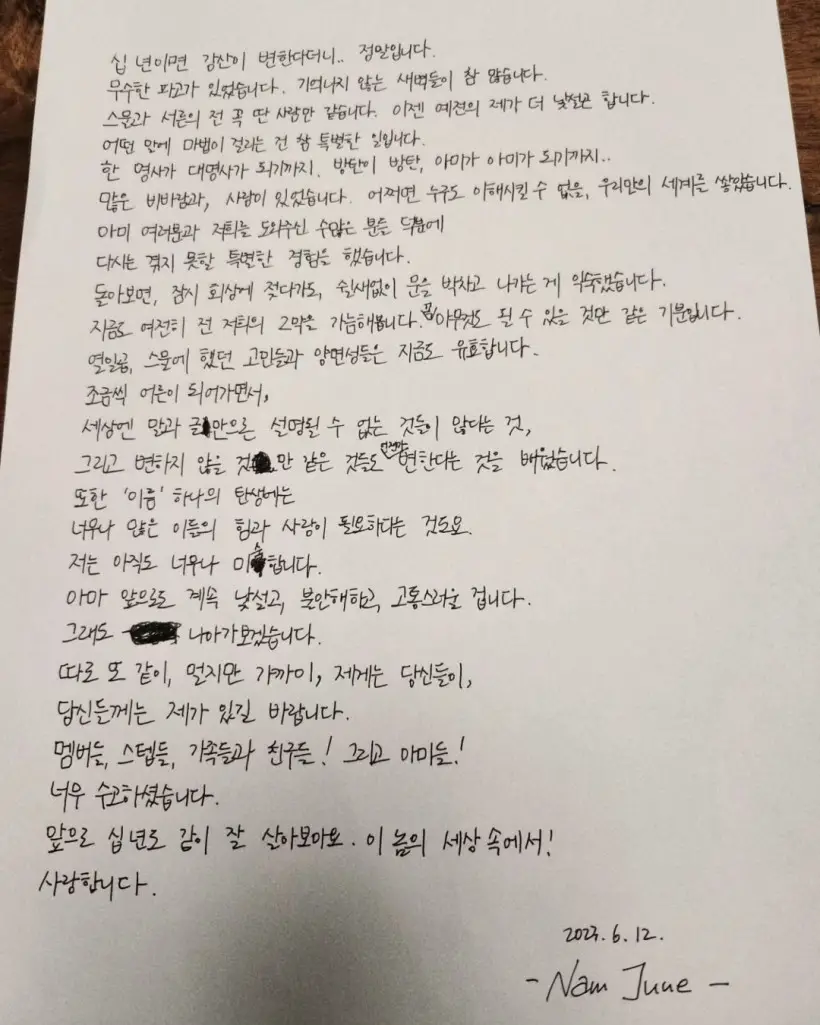 십 년이면 강산이 변한다더니.. 정말입니다.
무수한 파고가 있었습니다. 기억나지 않는 새벽들이 참 많습니다.
스물과 서른의 전 꼭 딴 사람만 같습니다. 이젠 예전의 제가 더 낯설곤 합니다.
어떤 안에 마법이 걸리는 건 참 특별한 일입니다.
한 명사가 대명사가 되기까지. 방탄이 방탄, 아미가 아미가 되기까지..
많은 비바람과, 사랑이 있었습니다. 어쩌면 누구도 이해시킬 수 없을, 우리만의 세계를 쌓았습니다.
아미 여러분과 저희를 도와주신 수많은 분들 덕분에
다시는 겪지 못할 특별한 경험을 했습니다.
돌아보면, 잠시 회상에 젖다가도, 쉴새없이 문을 박차고 나가는 게 익숙했습니다.
지금도 여전히 전 저희의 2막을 가늠해봅니다. 꼭 아무것도 될 수 있을 것만 같은 기분입니다.
열일곱, 스물에 했던 고민들과 양면성들은 지금도 유효합니다.
조금씩 어른이 되어가면서,
세상엔 말과 글만으론 설명될 수 없는 것들이 많다는 것,
그리고 변하지 않을 것만 같은 것들도 언젠가 변한다는 것을 배웠습니다.
또한 '이름' 하나의 탄생에는
너무나 많은 이들의 힘과 사랑이 필요하다는 것도요.
저는 아직도 너무나 미숙합니다.
아마 앞으로도 계속 낯설고, 불안해하고, 고통스러울 겁니다.
그래도 나아가보겠습니다.
따로 또 같이, 멀지만 가까이, 제게는 당신들이,
당신들께는 제가 있길 바랍니다.
멤버들, 스텝들, 가족들과 친구들! 그리고 아미들!
너무 수고하셨습니다.
앞으로 십 년도 같이 잘 살아보아요. 이 놈의 세상 속에서!
사랑합니다.
2023. 6. 12.
- Nam June -